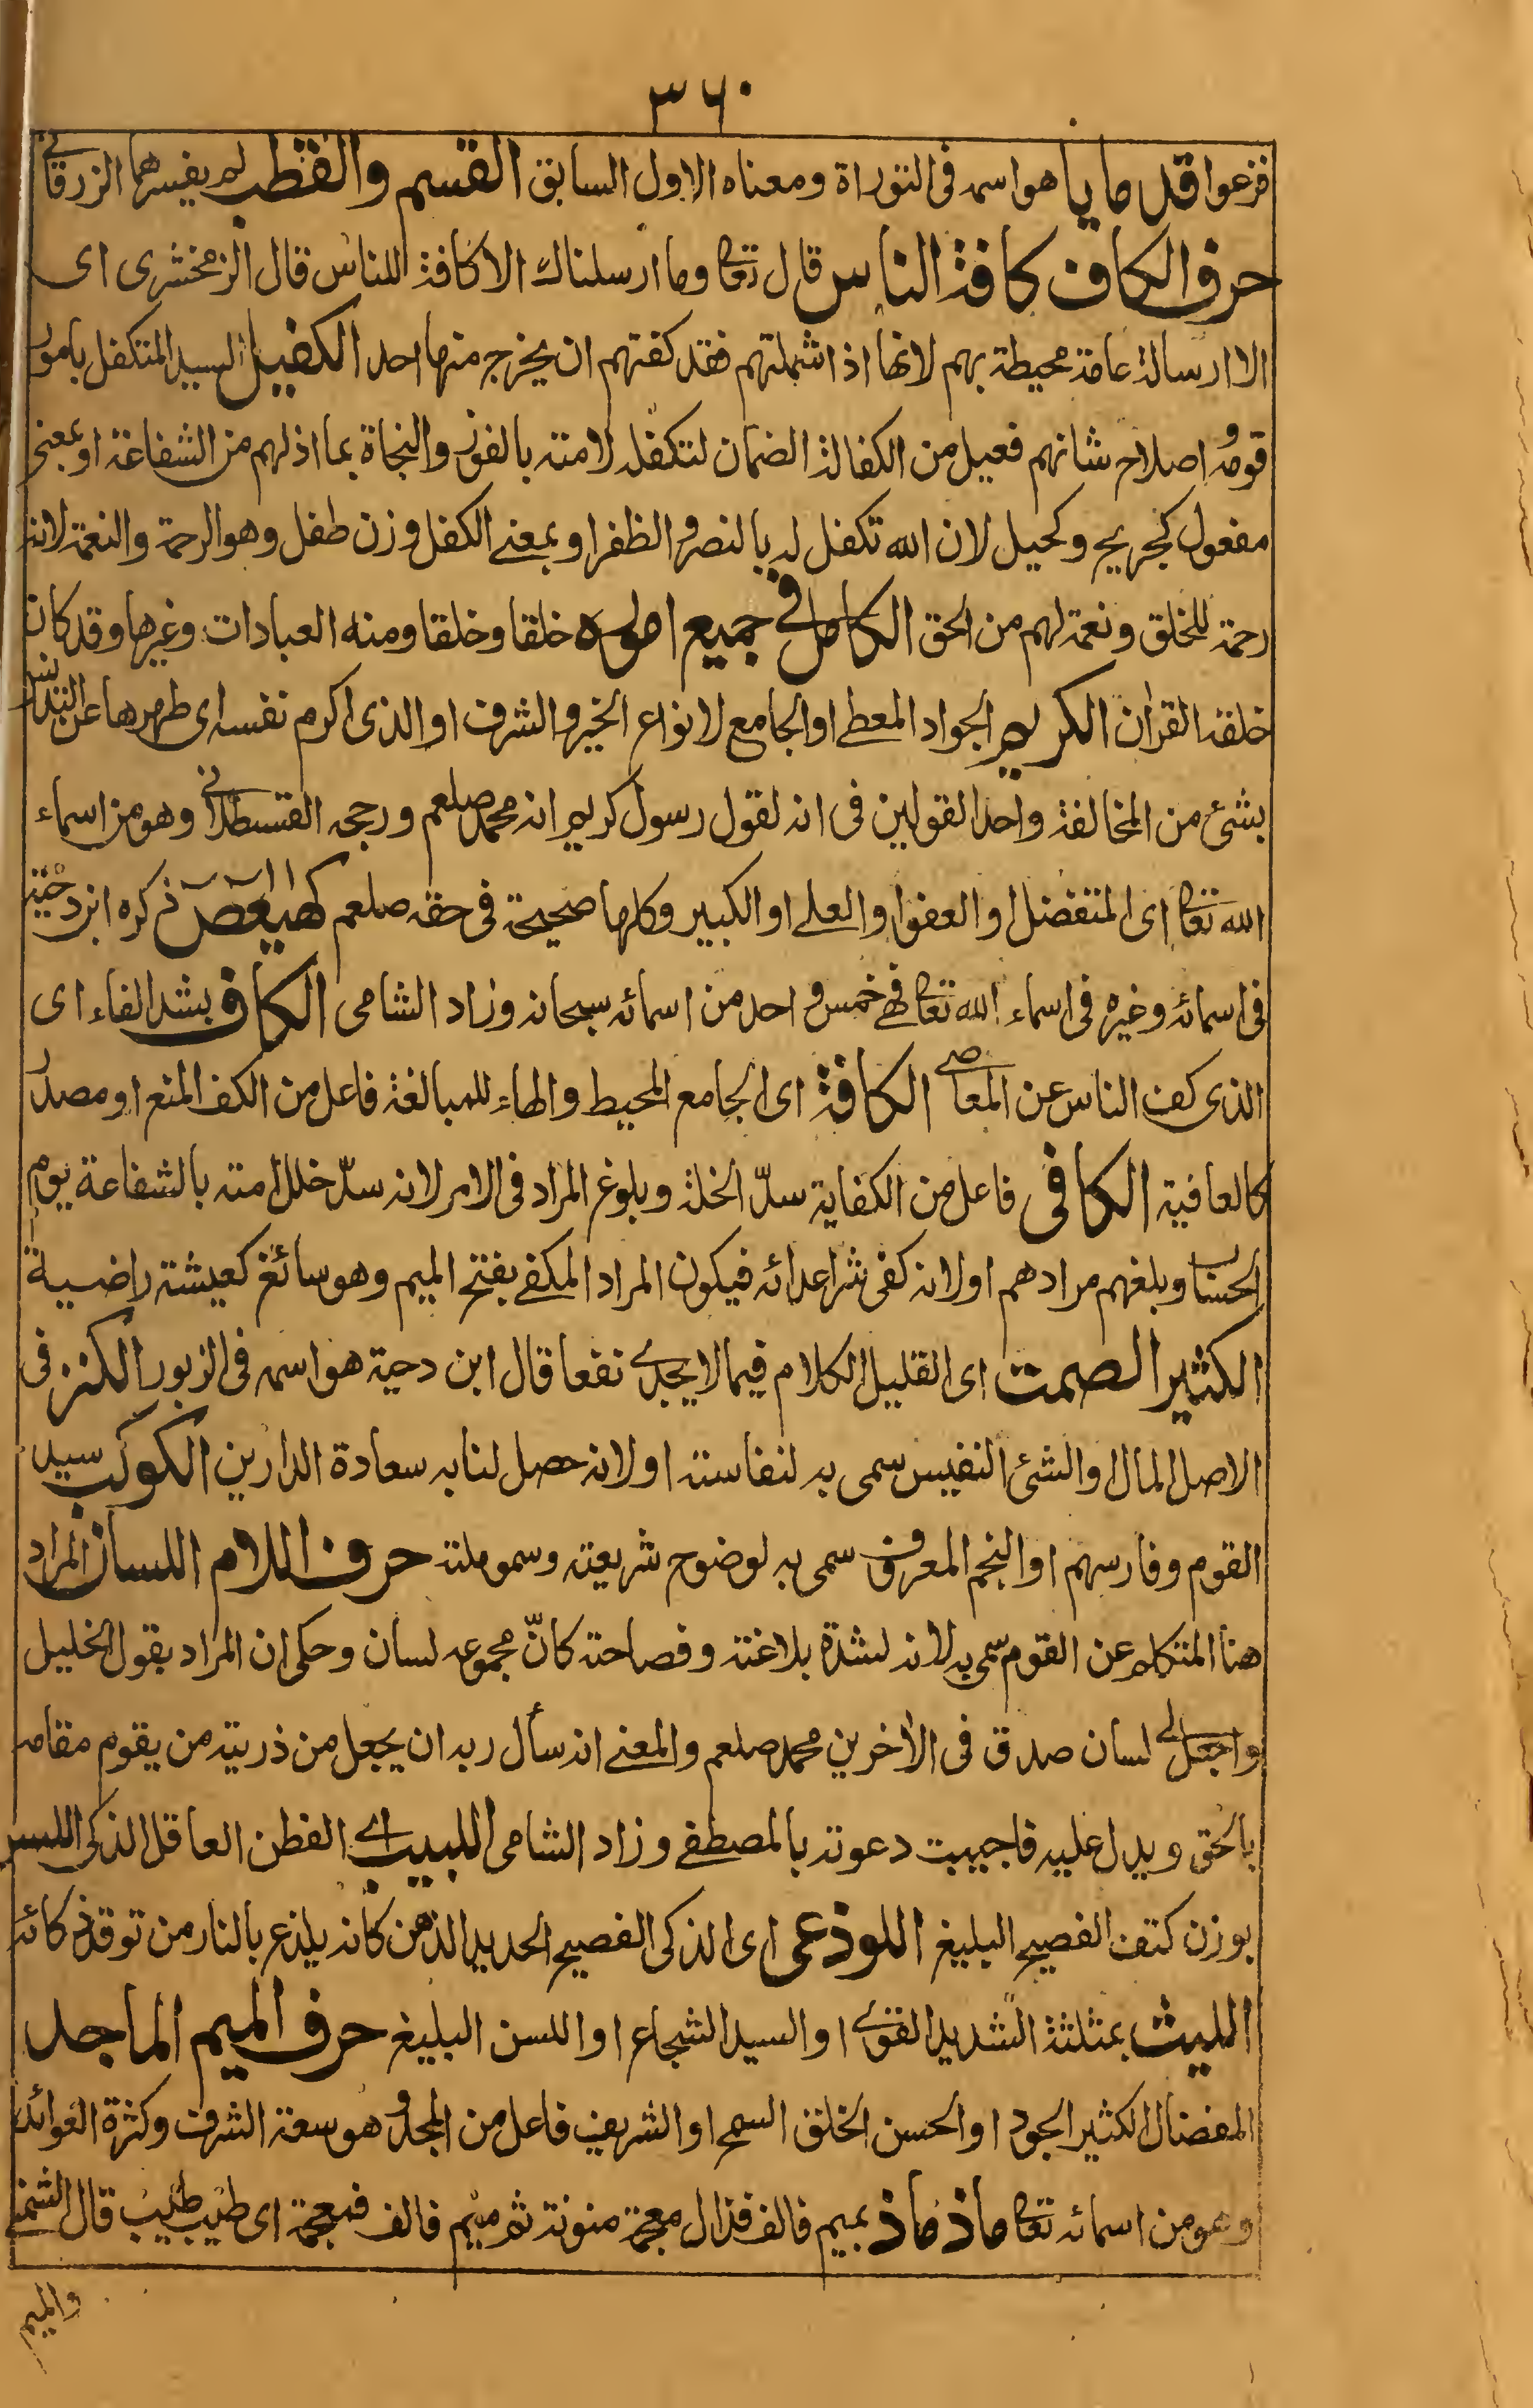 ٣٦٠
فزعوا قدمايا هو اسمه فى التوراة ومعناه الاول السابق القسم والقطب لم يفسرهما الزرقانے
حرف الكاف كافة الناس قال تعالى وما ارسلناك الا كافة للناس قال الزمخشرى اى
الا ارسالة عامة محيطة بهم لانها اذا شملتهم فقد كفتهم ان يخرج منها احد الكفيل السيد المتكفل بامور
قومه و اصلاح شانهم فعيل من الكفالة الضمان لتكفله لامته بالفوز والنجاة بما اذ لهم من الشفاعة او بمعنى
مفعول كجريح وكحيل لان الله تكفل له بالنصر والظفر او بمعنے الكفل وزن طفل وهو الرحمة والنعمة لانه
رحمة للخلق ونعمة لهم من الحق الكامل فى جميع اموره خلقا وخلقا ومنه العبادات وغيرها وقد كان
خلقه القران الكريم الجواد المعطے او الجامع لانواع الخير والشرف او الذى اكرم نفسه اى طهرها عن التدنس
بشئ من المخالفة واحد القولين فى انه لقول رسول كريم انه محمد صلعم ورجحه القسطلانے وهو من اسماء
الله تعالى اى المتفضل او العفو او العلے او الكبير وكلها صحيحة فى حقه صلعم كهيعص ذكره ابن دحية
فى اسمائه وغيره فى اسماء الله تعالى فهى خمس واحد من اسمائه سبحانه وزاد الشامى الكاف بشد الفاء اى
الذى كف الناس عن المعاصے الكافة اى الجامع المحيط والهاء للمبالغة فاعل من الكف المنع او مصدر
كالعافية الكافى فاعل من الكفاية سدّ الخلة وبلوغ المراد فى الامر لانه سدّ خلل امته بالشفاعة يوم
الحساب وبلغهم مرادهم او لانه كفى شر اعدائه فيكون المراد المكفے بفتح الميم وهو سائغ كعيشة راضية
الكثير الصمت اى القليل الكلام فيما لا يجدے نفعا قال ابن دحية هو اسمه فى الزبور الكنز فى
الاصل المال او الشئ النفيس سمى به لنفاسته او لانه حصل لنا به سعادة الدارين الكوكب سيد
القوم وفارسهم او النجم المعروف سمى به لوضوح شريعته وسمو ملته حرف اللام اللسان المراد
هنا المتكلم عن القوم سمى به لانه لشدة بلاغته وفصاحته كانّ مجموعه لسان وحكى ان المراد بقول الخليل
واجعل لى لسان صدق فى الاخرين محمد صلعم والمعنے انه سأل ربه ان يجعل من ذريته من يقوم مقامه
بالحق ويدل عليه فاجيبت دعوته بالمصطفے وزاد الشامى اللبيب اے الفطن العاقل الذكى اللسن
بوزن كتف الفصيح البليغ اللوذعى اى الذكى الفصيح الحديد الذهن كانه يلذع بالنار من توقد ذكائه
الليث بمثلثة الشديد القوے او السيد الشجاع او اللسن البليغ حرف الميم الماجد
المفضال الكثير الجود او الحسن الخلق السمح او الشريف فاعل من المجد وهو سعة الشرف وكثرة العوائد
وهو من اسمائه تعالى ماذ ماذ بميم فالف فذال معجمة منونة ثم ميم فالف فمعجمة اى طيب طيب قال الشمنے
والميم